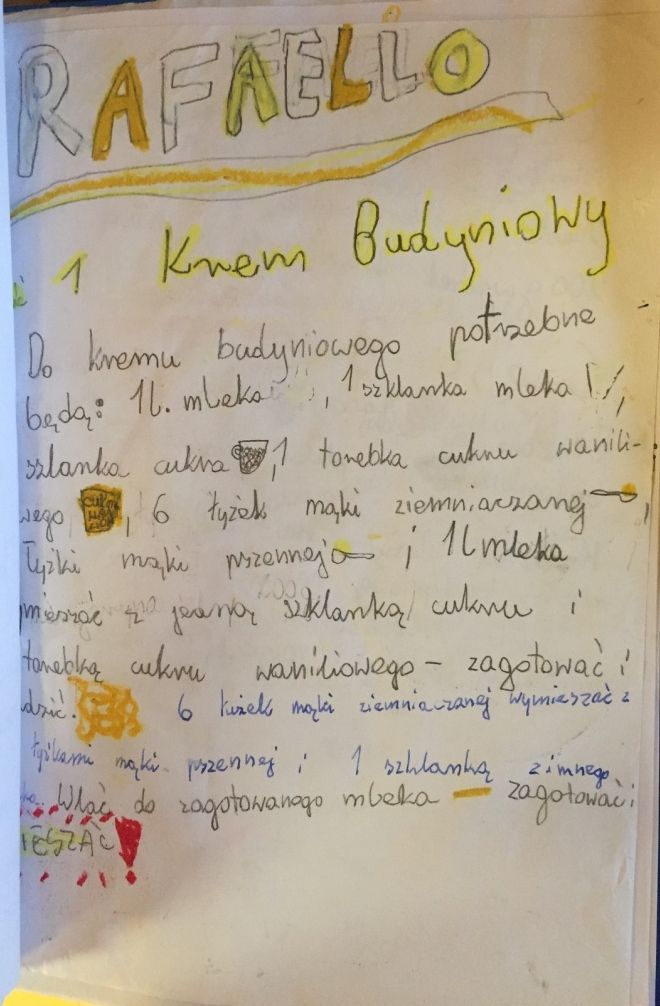 RAFAELLO
1 Krem Budyniowy
Do kremu budyniowego potrzebne
będą: 1l. mleka, 1 szklanka mleka,
szlanka cukru, 1 torebka cukru wanili-
wego, 6 łyżek mąki ziemniaczanej,
łyżki mąki pszennej i 1l mleka
mieszać z jedną szklanką cukru i
torebką cukru waniliowego - zagotować i
dzić. 6 łużek mąki ziemniaczanej wymieszać z
łyżkami mąki pszennej i 1 szklanką zimnego
Wlać do zagotowanego mleka - zagotować i
IESZAĆ!